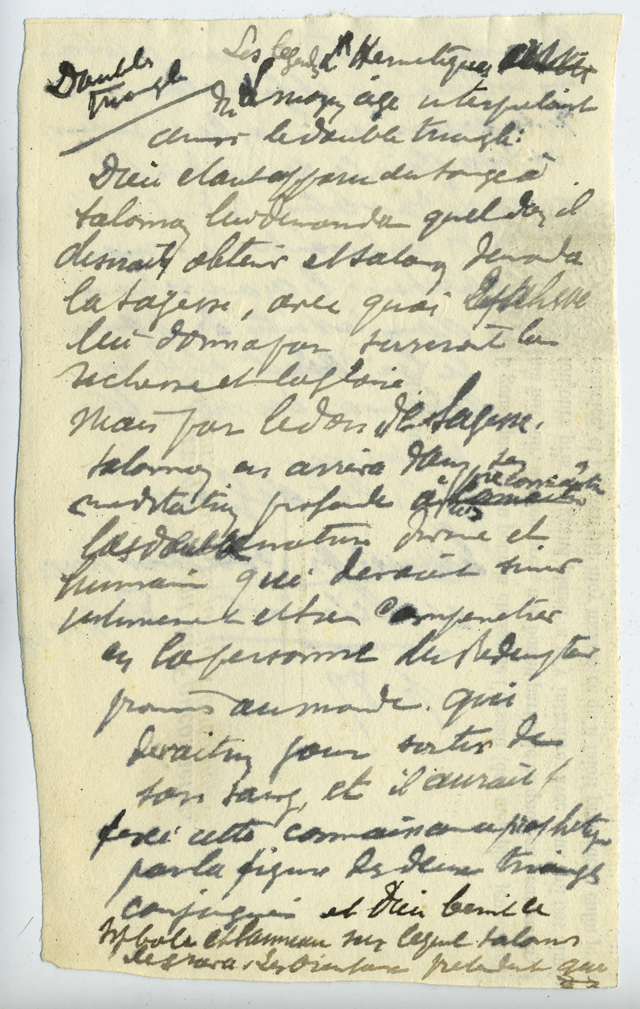 Double
triangle
Les legendes Hermetiques
du moyen age interpretant
ainsi le double triangle:
Dieu etant apparu en songe à
Salomon lui demanda quel don il
desirait obtenir et Salomon demanda
la sagesse, avec quoi
lui donna par surcroit la
richesse et la gloire
mais par le don de Sagesse.
Salomon en arriva dans ses
meditations profondes à preconnaitre
les double nature divine et
humaine qui devaient s'unir
intimement et se Compenetrer
en la personne du Redempteur
promis au monde. qui
devait un jour sortir de
son sang, et il aurait
fixé cette connaissance prophetique
par la figure des deux triangles
conjugués et Dieu benit le
symbole et l'anneau sur lequel Salomon
le grava. Les Orientaux pretendent que